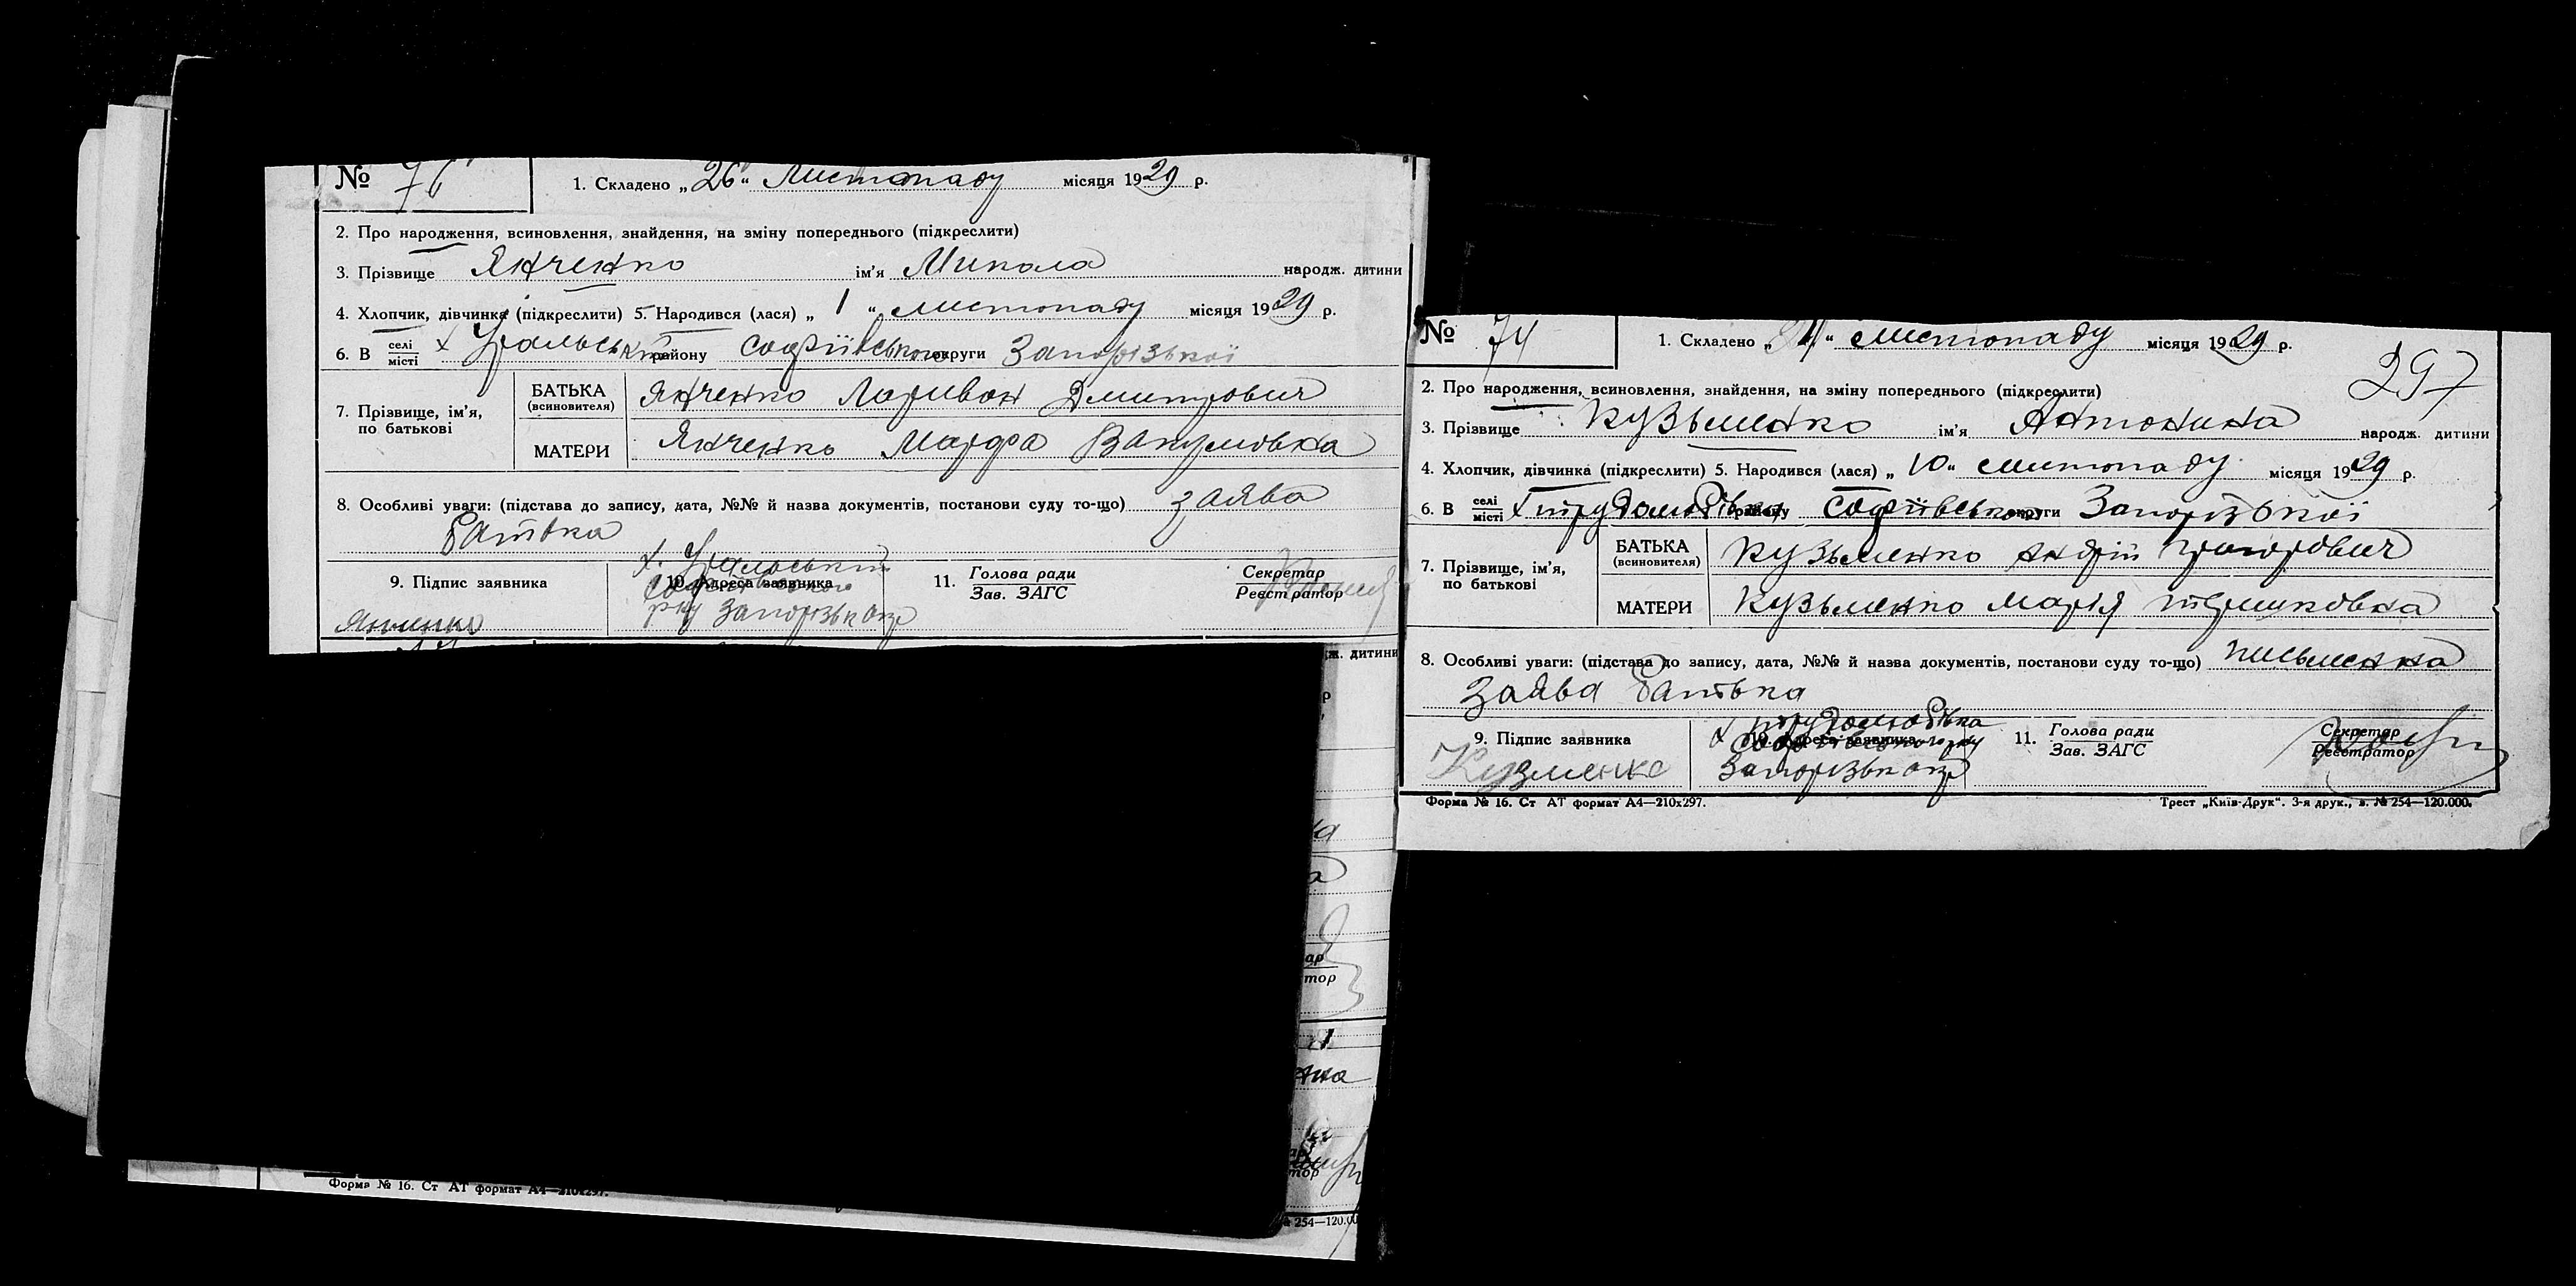 № 76 1. Складено „26“ Листопаду місяця 1929 р.
2. Про народження, всиновлення, знайдення, на зміну попереднього (підкреслити)
3. Прізвище Янченко ім'я Микола народж. дитини
4. Хлопчик, дівчинка (підкреслити) 5. Народився (лася) „ 1 “ листопаду місяця 1929 р.
6. В селі місті х Уральський району Софіївського округи Запорізької
7. Прізвище, ім'я, по батькові
БАТЬКА (всиновителя) Янченко Ларивон Дмитрович
МАТЕРИ Янченко Марфа Вакумовна
8. Особливі уваги: (підстава до запису, дата, №№ й назва документів, постанови суду то-що) заява
батька
9. Підпис заявника 10. Адреса заявника 11. Голова ради Зав. ЗАГС Секретар Реєстратор
х. Уральський
Софіївського
Янченко р-ну Запорізьк окр
ж. дитини
ар
тор
тор
Форма № 16. Ст АТ формат А4—210х297.
№ 254—120.00
№ 74 1. Складено „ “ листопаду місяця 1929 р.
297
2. Про народження, всиновлення, знайдення, на зміну попереднього (підкреслити)
3. Прізвище Кузьменко ім'я Антонина народж. дитини
4. Хлопчик, дівчинка (підкреслити) 5. Народився (лася) „ 10 “ листопаду місяця 1929 р.
6. В селі місті х Трудолюбівка району Софіївського округи Запорізької
7. Прізвище, ім'я, по батькові
БАТЬКА (всиновителя) Кузьменко Андрій Григорович
МАТЕРИ Кузьменко Марія
8. Особливі уваги: (підстава до запису, дата, №№ й назва документів, постанови суду то-що) письменна
Заява батька
9. Підпис заявника 10. Адреса заявника 11. Голова ради Зав. ЗАГС Секретар Реєстратор
х Трудолюбівка
Софіївського р-ну
Кузменко Запорізьк окр
Форма № 16. Ст АТ формат А4—210х297. Трест „Київ-Друк“. 3-я друк., з. № 254—120.000.